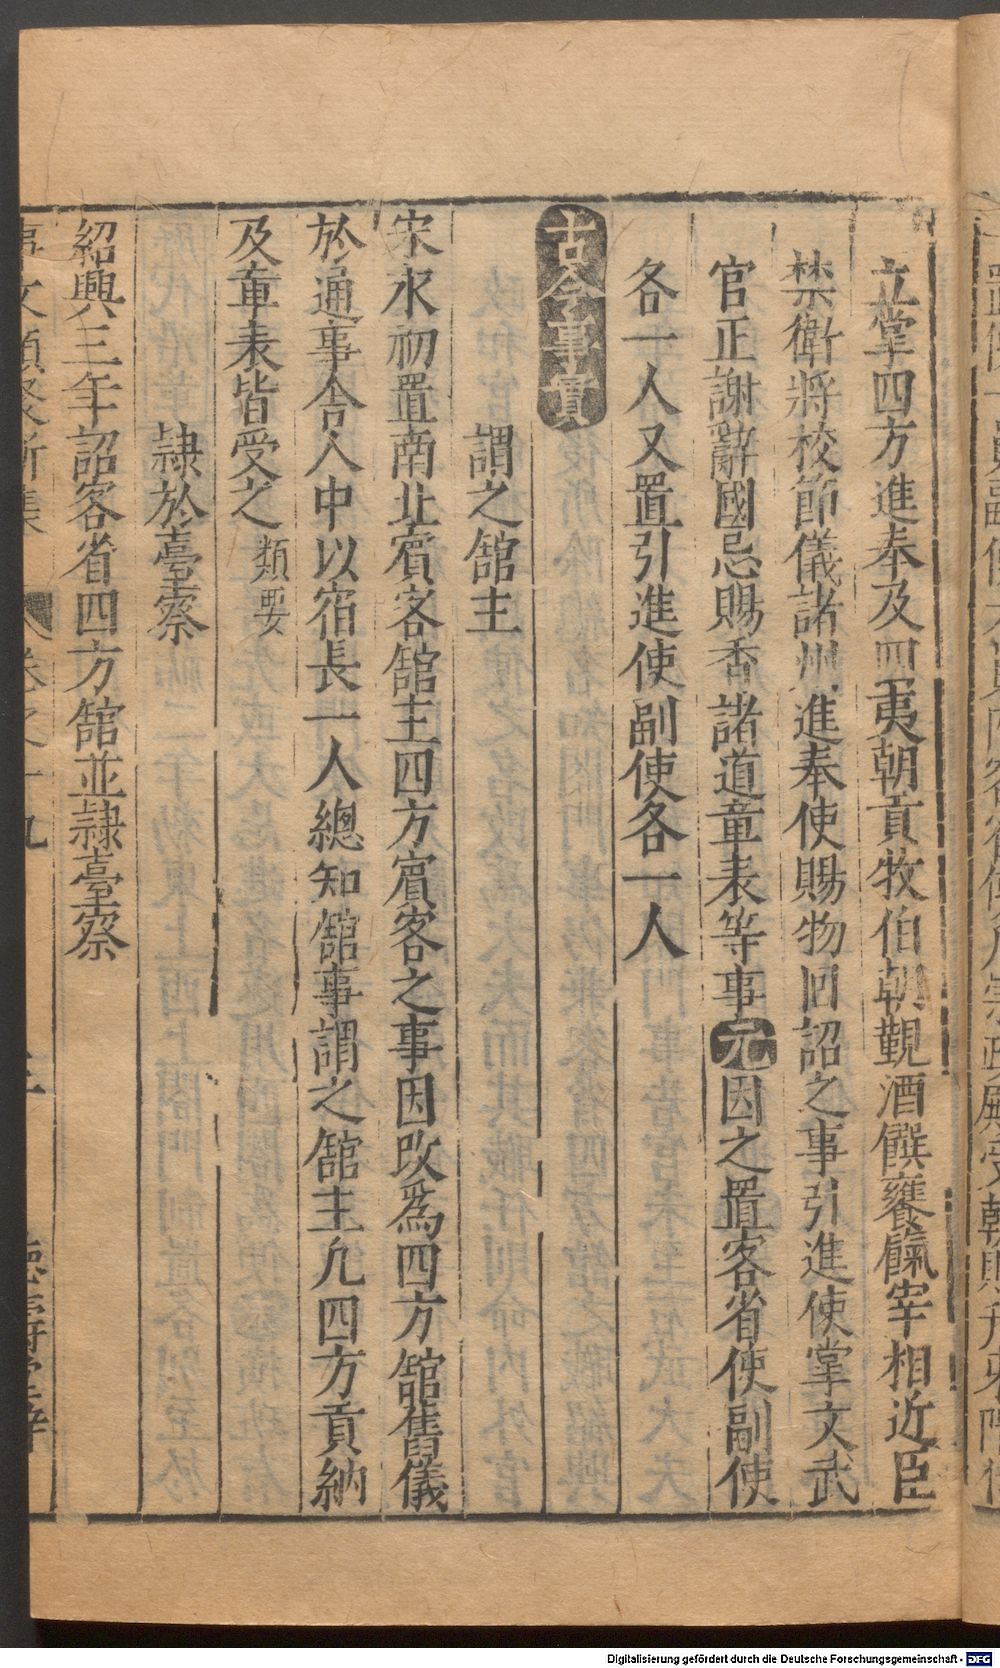 立掌四方進奉及四夷朝貢牧伯朝覲酒饌饔餼宰相近臣
禁衛將校節儀諸州進奉使賜物回詔之事引進使掌文武
官正謝辭國忌賜香諸道章表等事元因之置客省使副使
各一人又置引進使副使各一人
古今事實
謂之舘主
宋永初置南北賓客舘主四方賓客之事因改爲四方舘舊儀
於通事舍人中以宿長一人總知舘事謂之舘主凢四方貢納
及章表皆受之類要
隷於臺察
紹興三年詔客省四方舘並隷臺察
事文類聚新集 卷之十九
德壽堂梓
Digitalisierung gefördert durch die Deutsche Forschungsgemeinschaft - DFG